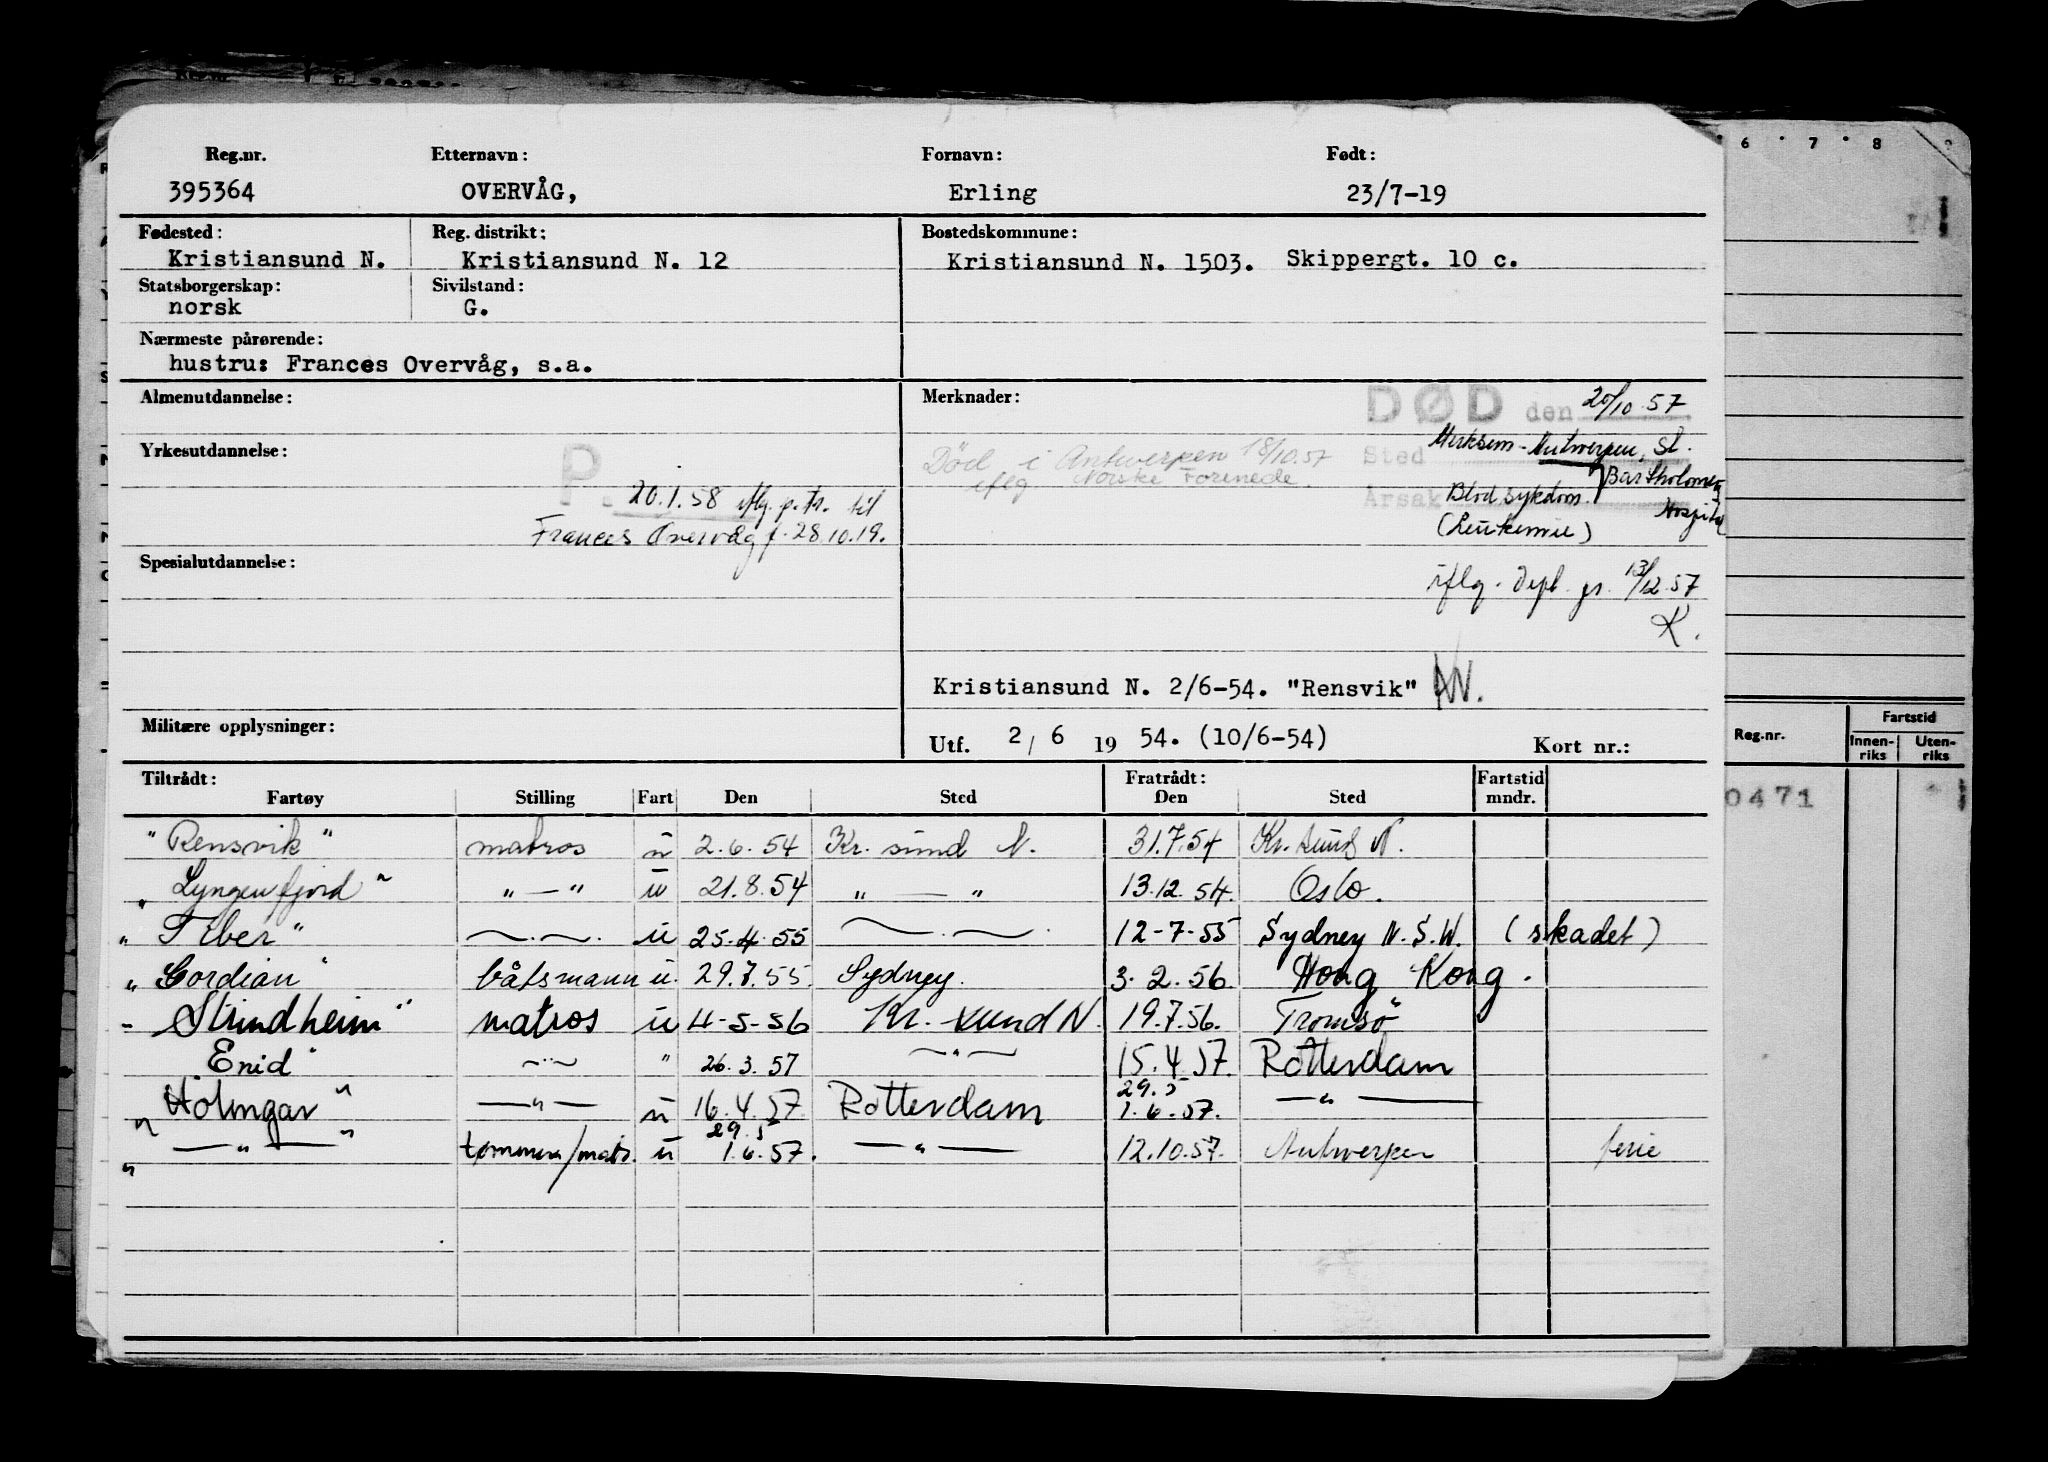 Reg.nr. Etternavn: Fornavn: Født:
395364 OVERVÅG, Erling 23/7-19
Fødested: Reg. distrikt: Bostedskommune:
Kristiansund N. Kristiansund N. 12 Kristiansund N. 1503. Skippergt. 10 c.
Statsborgerskap: Sivilstand:
norsk G.
Nærmeste pårørende:
hustru: Frances Overvåg, s.a.
Almenutdannelse: Merknader: DØD den 20/10.57
Yrkesutdannelse: Død i Antwerpen 18/10.57 Sted Merksem-Antwerpen, St.
P. iflg Norske Forenede. Bartholomeus
20.1.58 iflg. p.kr. til Årsak Blodsykdom. Hospital
Frances Overvåg f. 28.10.19. (Leukemie)
Spesialutdannelse: iflg. Dept. gr. 13/12.57
K.
Kristiansund N. 2/6-54. "Rensvik" AW.
Militære opplysninger: Utf. 2/6 1954. (10/6-54) Kort nr.:
Tiltrådt: Fratrådt: Fartstid
Fartøy Stilling Fart Den Sted Den Sted mndr.
"Rensvik" matros u 2.6.54 Kr. sund N. 31.7.54 Kr. sund N.
"Lyngenfjord" " — " u 21.8.54 " — " 13.12.54. Oslo.
"Tiber" —.—. u 25.4.55 —.—. 12-7-55 Sydney N.S.W. (skadet)
"Gordian" båtsmann u. 29.7.55. Sydney. 3.2.56. Hong Kong.
"Strindheim" matros u 4-5-56 Kr. sund N. 19.7.56. Tromsø
Enid" —"— " 26.3.57 —"— 15.4.57. Rotterdam
"Holmgar" —"— u 16.4.57 Rotterdam 29.5 1.6.57. —"—
"—"—" tømmerm/mats. u 29.5 1.6.57. —"— 12.10.57. Antwerpen ferie
6 7 8 9
Reg.nr. Fartstid
Innen-riks Uten-riks
0471